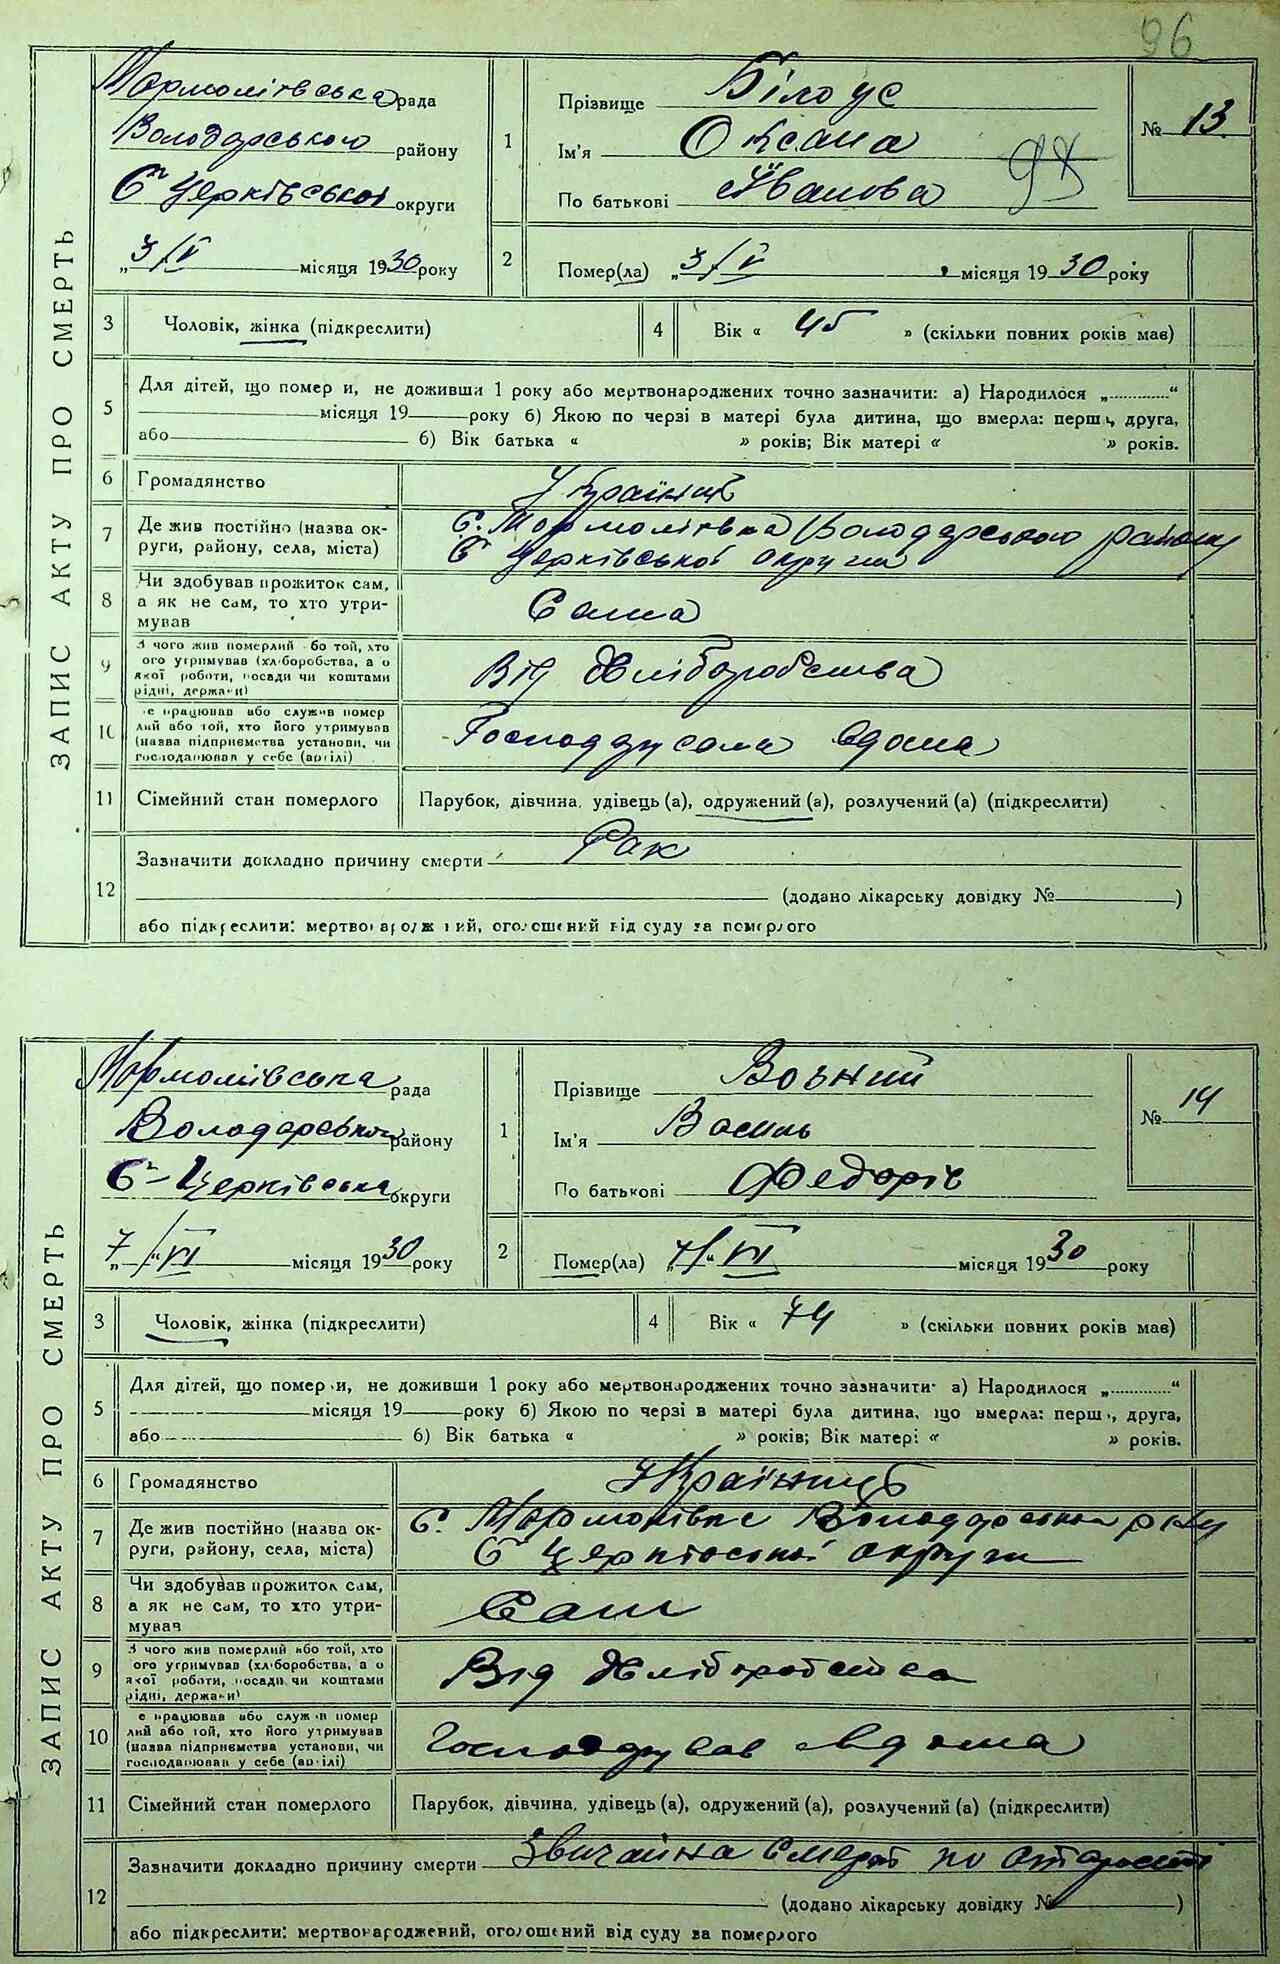 96
ЗАПИС АКТУ ПРО СМЕРТЬ
Мормоліївська рада
Володарського району
Б Церківської округи
„3/V місяця 1930 року
1
Прізвище Білоус
Ім'я Оксана
По батькові Іванова
№ 13
2
Помер(ла) „3/V місяця 1930 року
3 Чоловік, жінка (підкреслити)
4 Вік « 45 » (скільки повних років мав)
5 Для дітей, що помер и, не доживши 1 року або мертвонароджених точно зазначити: а) Народилося „..............“
місяця 19 року б) Якою по черзі в матері була дитина, що вмерла: перш , друга,
або 6) Вік батька « » років; Вік матері « » років.
6 Громадянство
7 Де жив постійно (назва ок-
руги, району, села, міста)
с. Мормоліївка Володарського району
Б Церківської округи
8 Чи здобував прожиток сам,
а як не сам, то хто утри-
мував
Сама
9 З чого жив померлий бо той, хто
ого утримував (хл боробства, а о
якої роботи, посади чи коштами
рідні, держави)
Від хліборобства
10 е працював або служив помер
лий або той, хто його утримував
(назва підприємства установи, чи
господарював у себе (артілі)
Господарувала вдома
11 Сімейний стан померлого Парубок, дівчина, удівець (а), одружений (а), розлучений (а) (підкреслити)
12 Зазначити докладно причину смерти Рак
(додано лікарську довідку № )
або підкреслити: мертвонароджений, оголошений від суду за померлого
ЗАПИС АКТУ ПРО СМЕРТЬ
Мормоліївська рада
Володарського району
Б-Церківська округи
„7/“ VI місяця 1930 року
1
Прізвище
Ім'я Василь
По батькові Федорів
№ 14
2
Помер(ла) „7/“ VI місяця 1930 року
3 Чоловік, жінка (підкреслити)
4 Вік « 74 » (скільки повних років мав)
5 Для дітей, що помер и, не доживши 1 року або мертвонароджених точно зазначити: а) Народилося „..............“
місяця 19 року б) Якою по черзі в матері була дитина, що вмерла: перш , друга,
або 6) Вік батька « » років; Вік матері « » років.
6 Громадянство Українець
7 Де жив постійно (назва ок-
руги, району, села, міста)
с. Мормоліївка Володарського р-ну
Б Церківської округи
8 Чи здобував прожиток сам,
а як не сам, то хто утри-
мував
Сам
9 З чого жив померлий або той, хто
ого утримував (хл боробства, а о
якої роботи, посади чи коштами
рідні, держави)
Від хліборобства
10 е працював або служив помер
лий або той, хто його утримував
(назва підприємства установи, чи
господарював у себе (артілі)
Господарував вдома
11 Сімейний стан померлого Парубок, дівчина, удівець (а), одружений (а), розлучений (а) (підкреслити)
12 Зазначити докладно причину смерти Звичайна смерть по старости
(додано лікарську довідку № )
або підкреслити: мертвонароджений, оголошений від суду за померлого